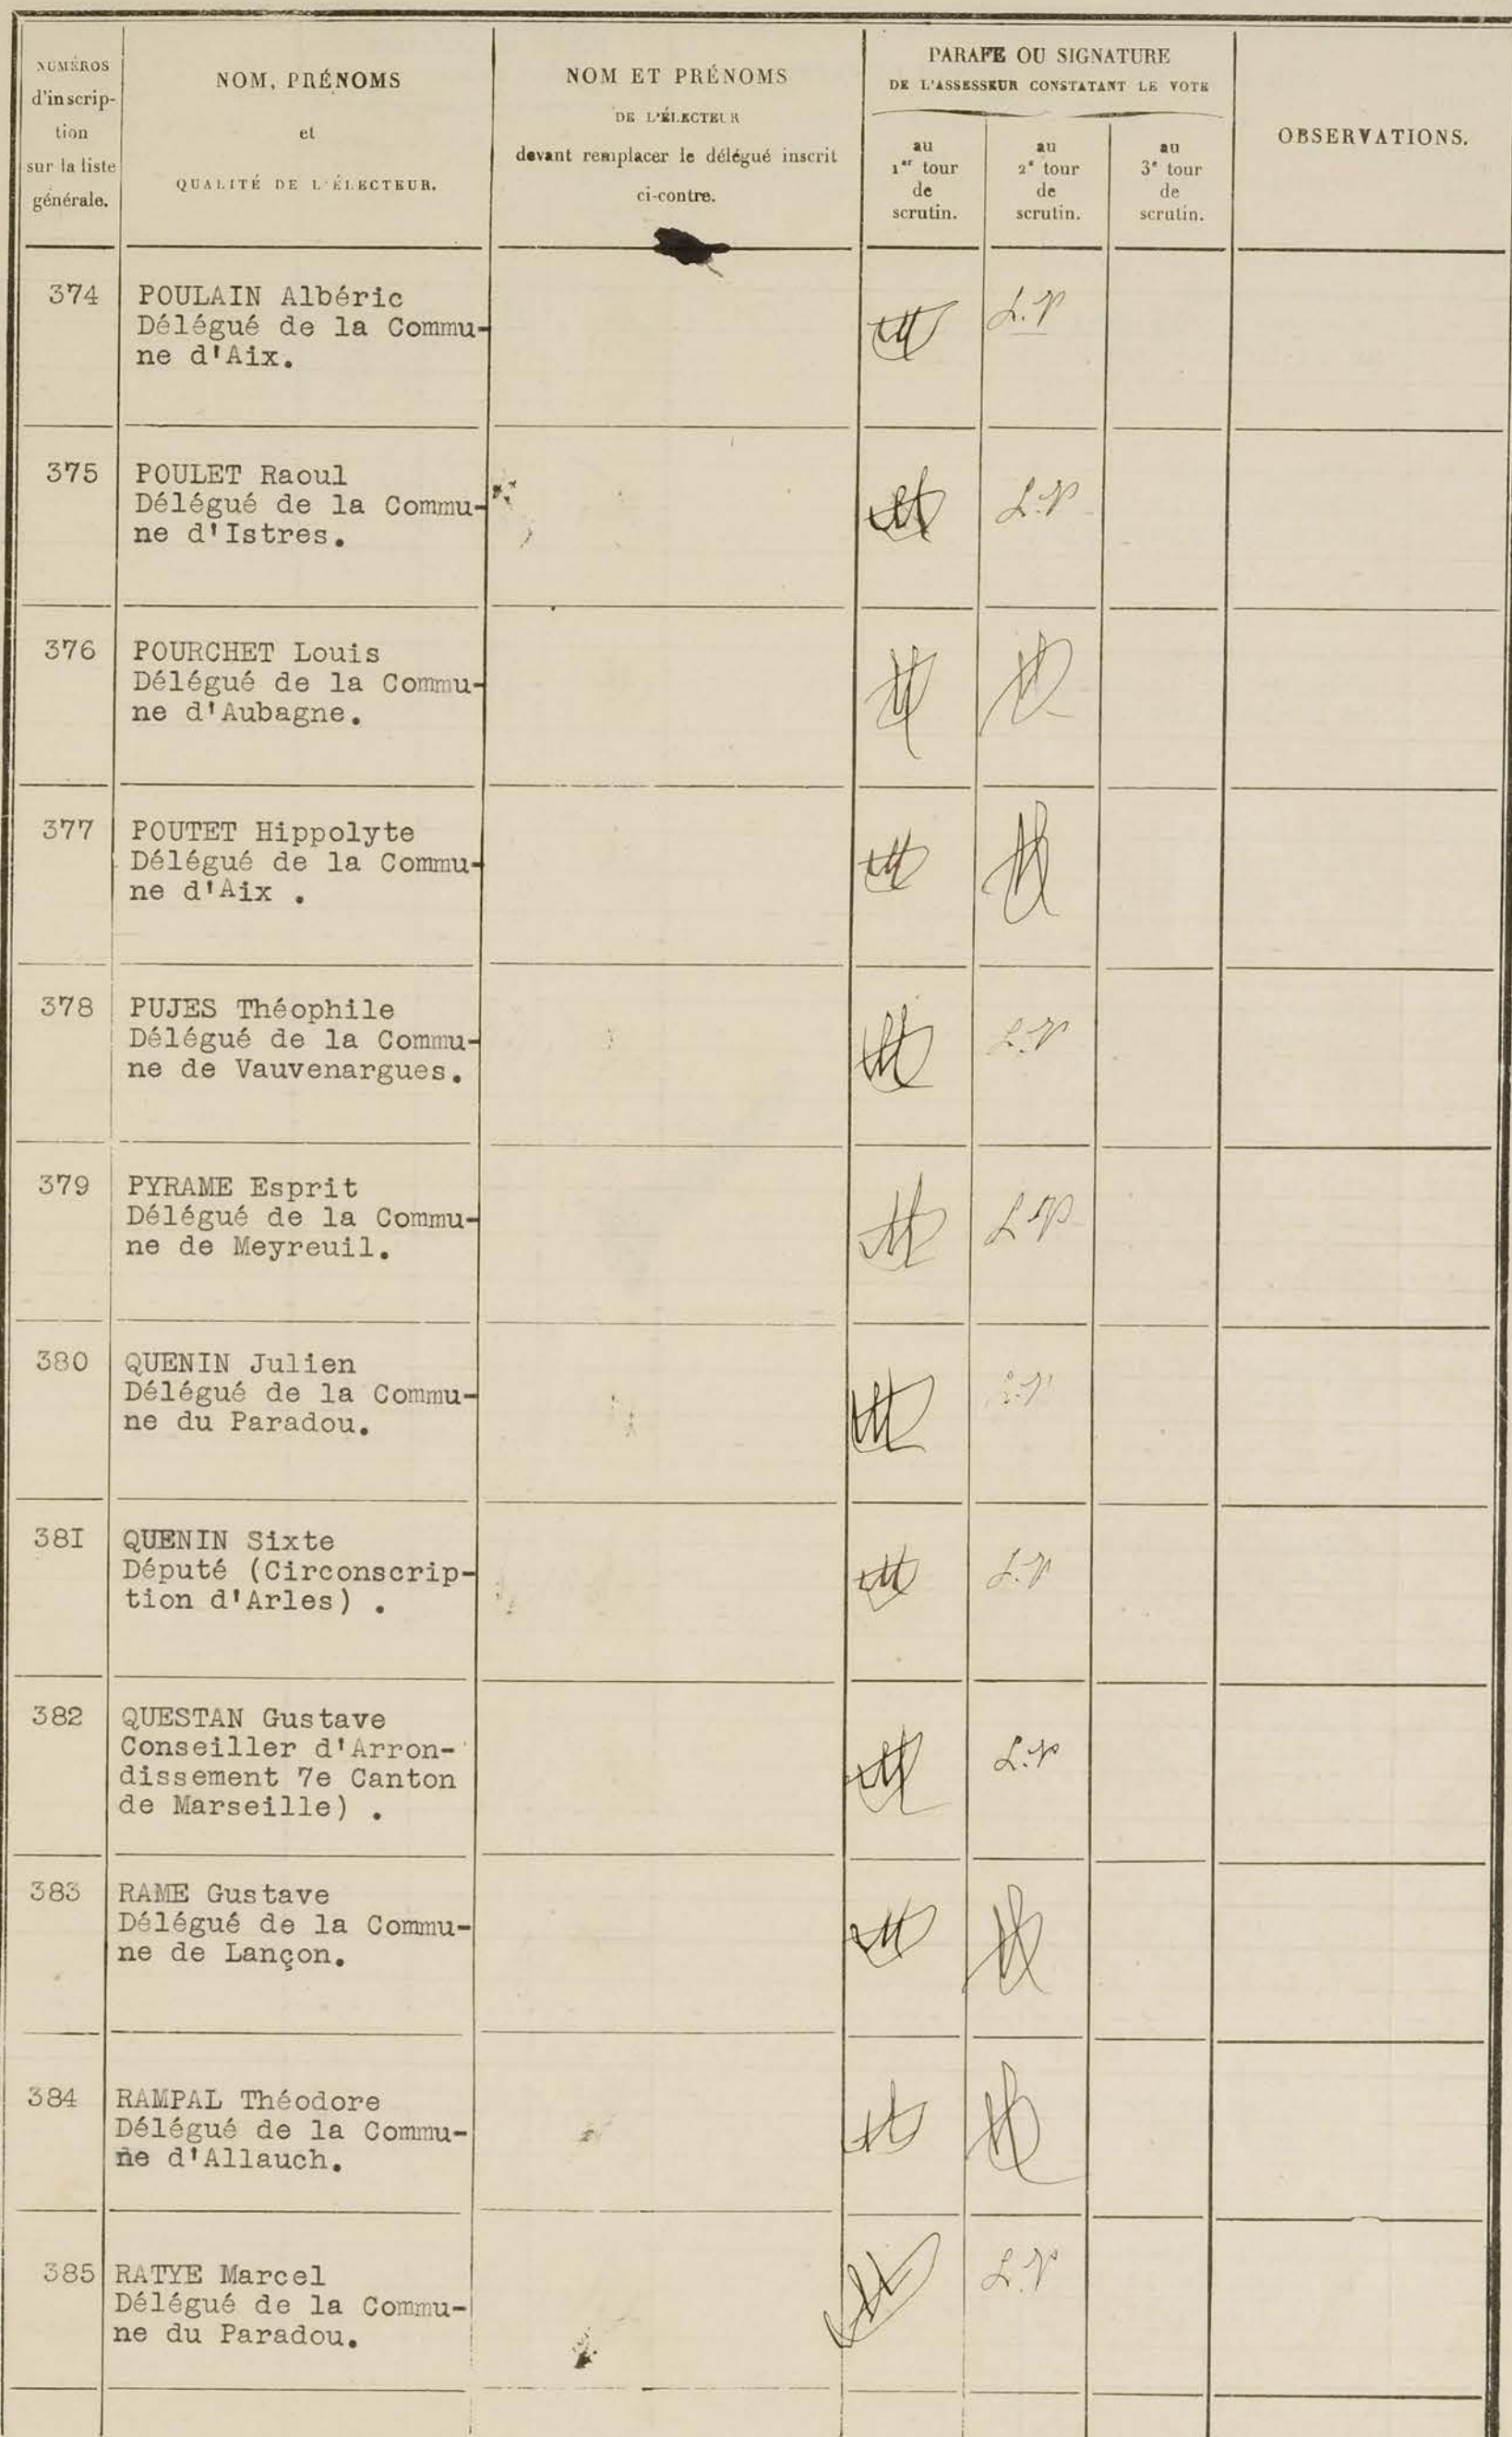 NUMÉROS
d'inscrip-
tion
sur la liste
générale.
NOM, PRÉNOMS
et
QUALITÉ DE L'ÉLECTEUR.
NOM ET PRÉNOMS
DE L'ÉLECTEUR
devant remplacer le délégué inscrit
ci-contre.
PARAFE OU SIGNATURE
DE L'ASSESSEUR CONSTATANT LE VOTE
au
1er tour
de
scrutin.
au
2e tour
de
scrutin.
au
3e tour
de
scrutin.
OBSERVATIONS.
374
POULAIN Albéric
Délégué de la Commu-
ne d'Aix.
375
POULET Raoul
Délégué de la Commu-
ne d'Istres.
376
POURCHET Louis
Délégué de la Commu-
ne d'Aubagne.
377
POUTET Hippolyte
Délégué de la Commu-
ne d'Aix .
378
PUJES Théophile
Délégué de la Commu-
ne de Vauvenargues.
379
PYRAME Esprit
Délégué de la Commu-
ne de Meyreuil.
380
QUENIN Julien
Délégué de la Commu-
ne du Paradou.
38I
QUENIN Sixte
Député (Circonscrip-
tion d'Arles) .
382
QUESTAN Gustave
Conseiller d'Arron-
dissement 7e Canton
de Marseille) .
383
RAME Gustave
Délégué de la Commu-
ne de Lançon.
384
RAMPAL Théodore
Délégué de la Commu-
ne d'Allauch.
385
RATYE Marcel
Délégué de la Commu-
ne du Paradou.